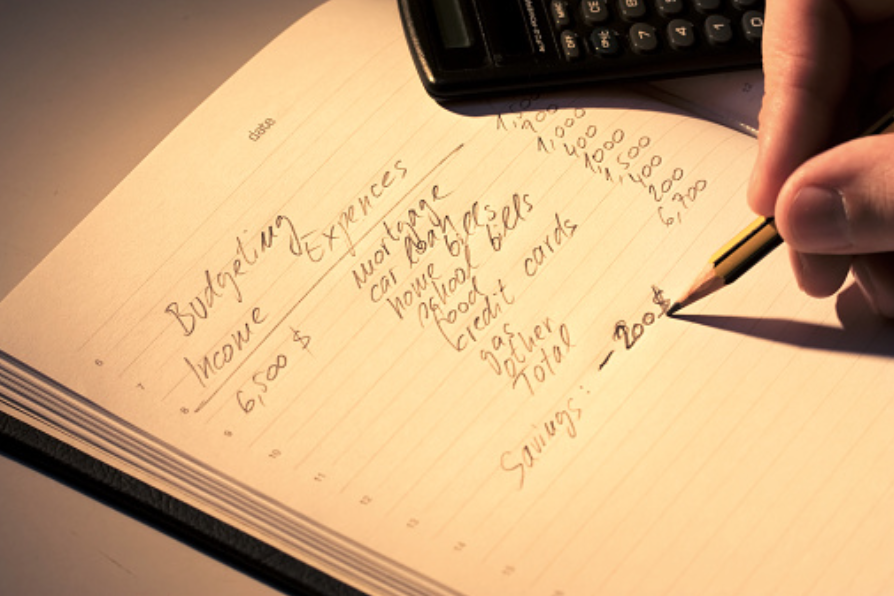 date
Budgeting
Income Expences
6,500 $ mortgage
car loan
home bills 1,000
school bills 400
food 1000
credit cards 500
gas 400
other 200
Total 6,700
Savings: - 200$
6
7
8
9
10
11
12
13
14
15
CE
7
4
1
0